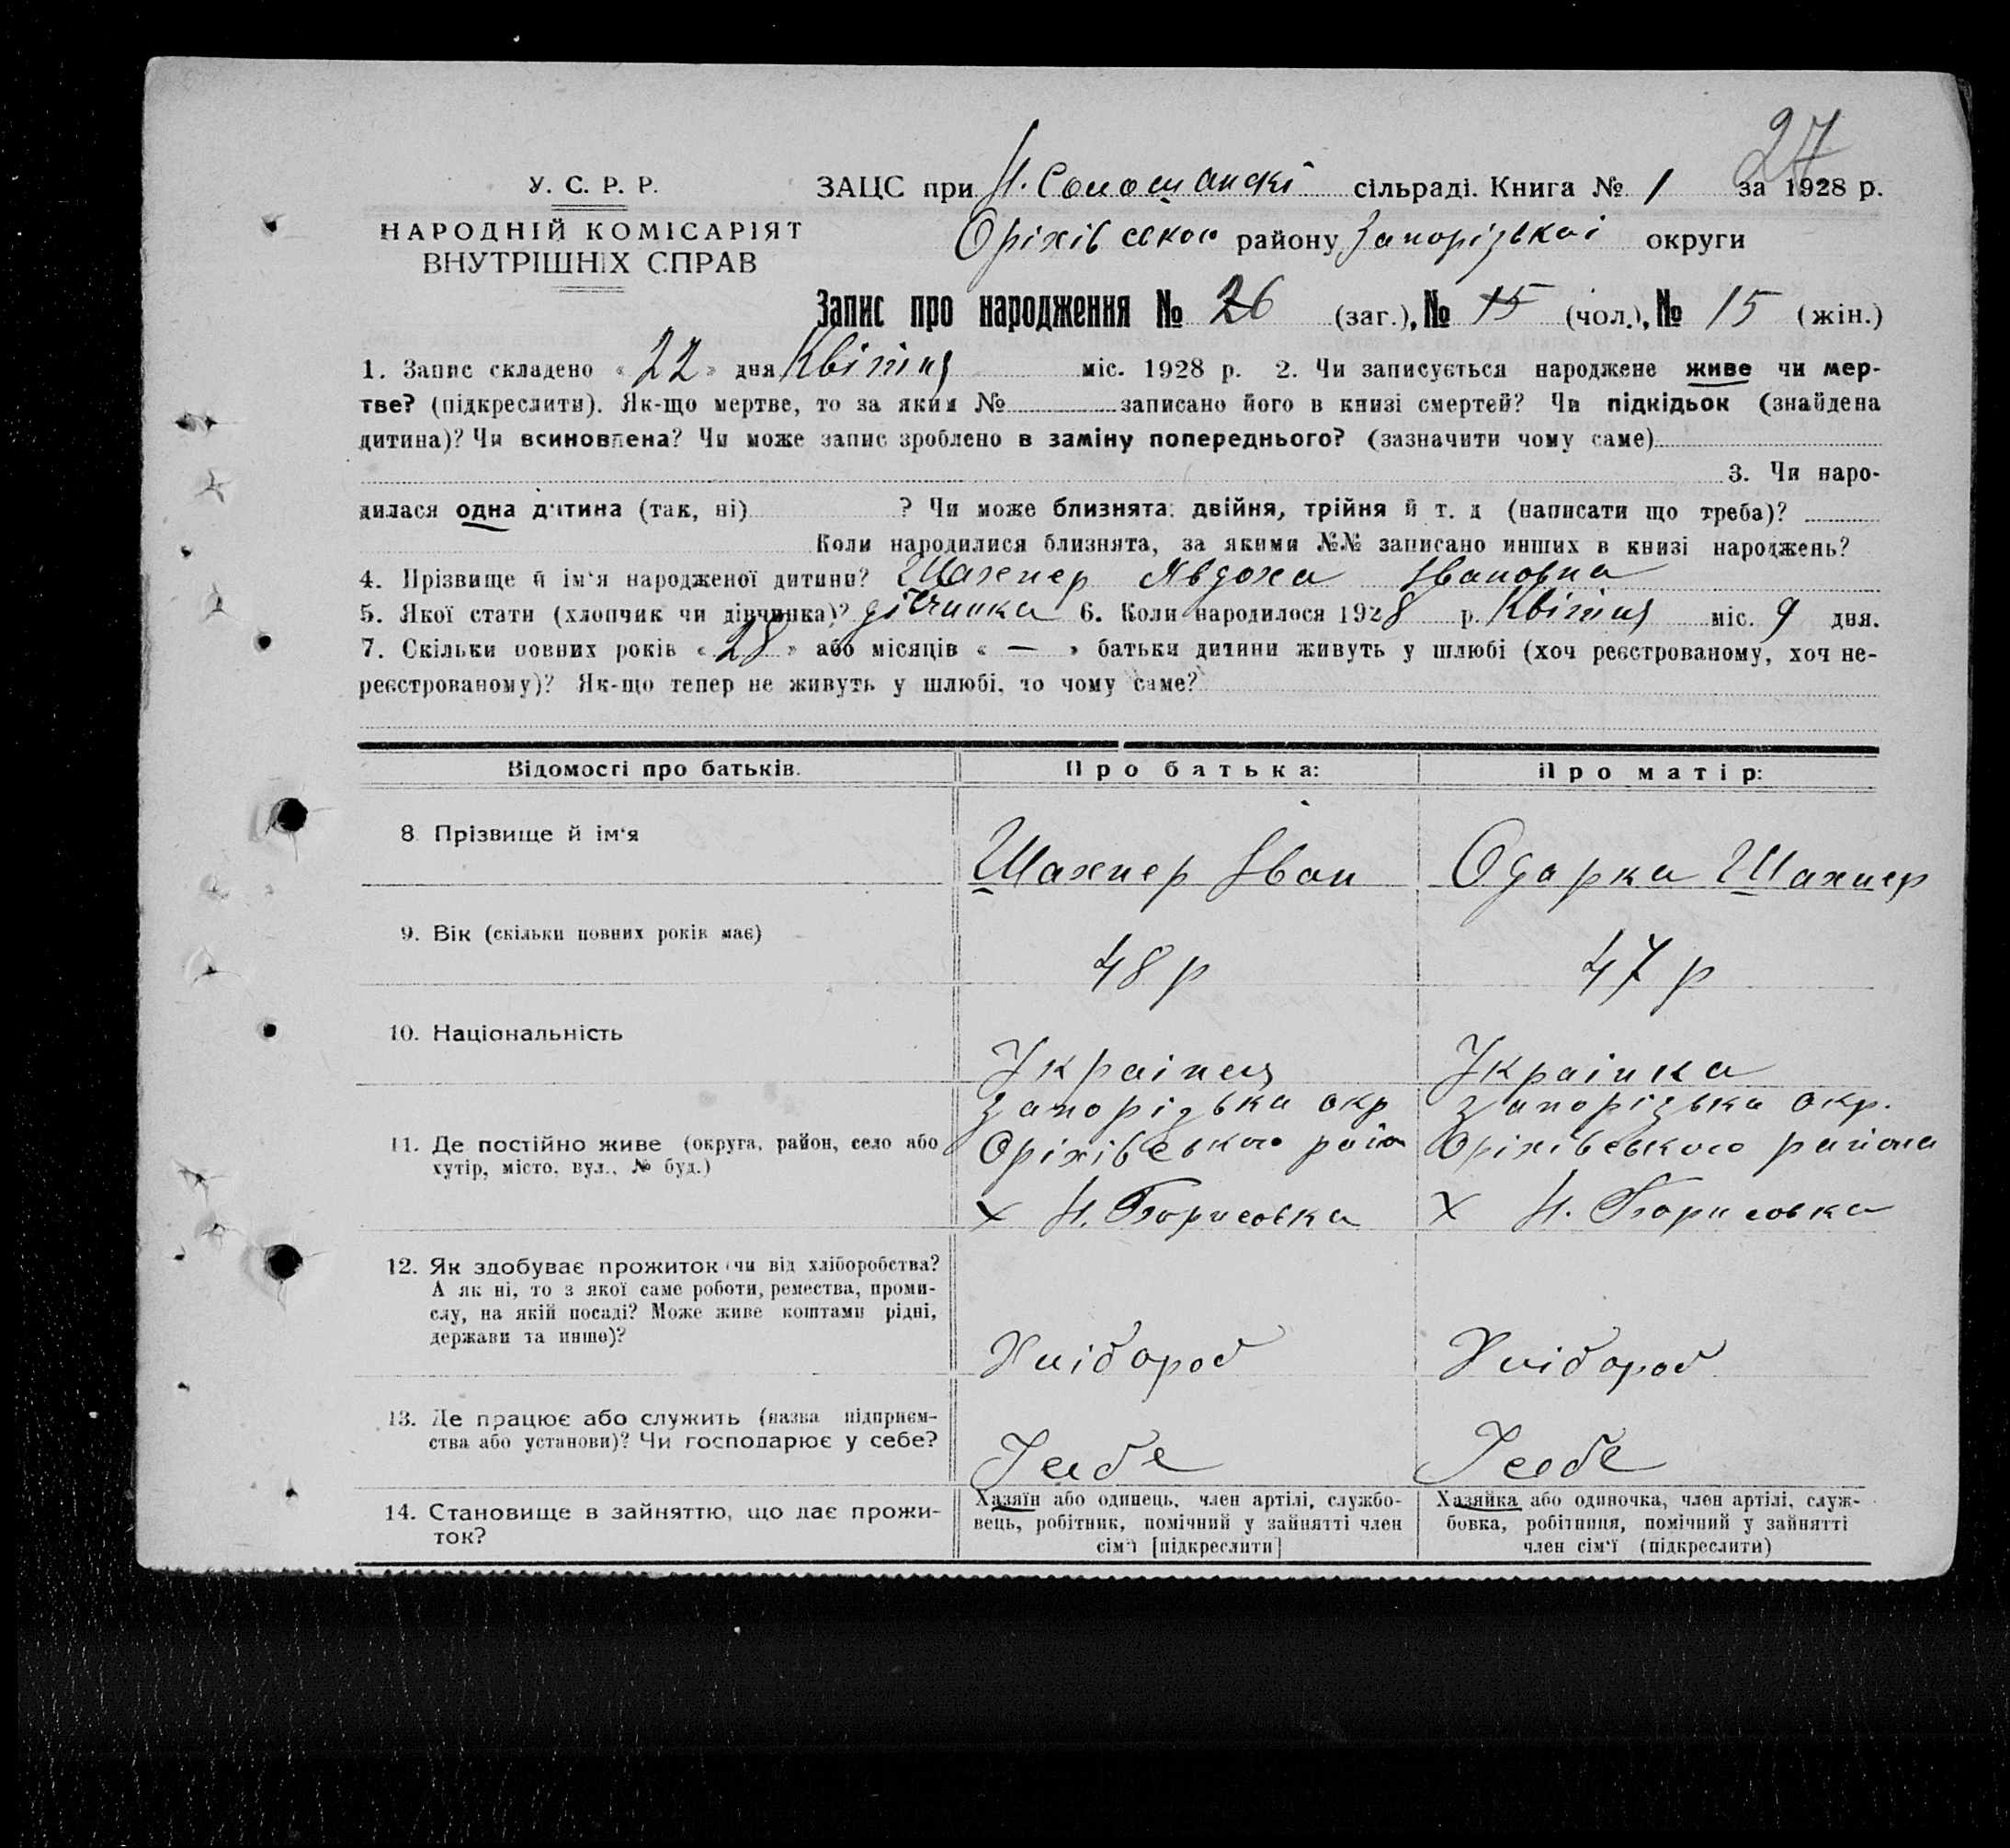 27
У. С. Р. Р.
ЗАЦС при сільраді. Книга № 1 за 1928 р.
НАРОДНІЙ КОМІСАРІЯТ
ВНУТРІШНІХ СПРАВ
Оріхівського району Запорізької округи
Запис про народження № 26 (заг.), № 15 (чол.), № 15 (жін.)
1. Запис складено „ 22 " дня Квітня міс. 1928 р. 2. Чи записується народжене живе чи мер-
тве? (підкреслити). Як-що мертве, то за яким № записано його в книзі смертей? Чи підкідьок (знайдена
дитина)? Чи всиновлена? Чи може запис зроблено в заміну попереднього? (зазначити чому саме)
3. Чи наро-
дилася одна дитина (так, ні) ? Чи може близнята: двійня, трійня й т. д (написати що треба)?
Коли народилися близнята, за якими №№ записано инших в книзі народжень?
4. Прізвище й ім'я народженої дитини? Шахнер Явдоха Івановна
5. Якої стати (хлопчик чи дівчинка)? дівчинка 6. Коли народилося 1928 р. Квітня міс. 9 дня.
7. Скільки повних років « 28 » або місяців « — » батьки дитини живуть у шлюбі (хоч реєстрованому, хоч не-
реєстрованому)? Як-що тепер не живуть у шлюбі, то чому саме?
Відомості про батьків. Про батька: Про матір:
8. Прізвище й ім'я
Шахнер Іван Одарка Шахнер
9. Вік (скільки повних років має)
48 р 47 р
10. Національність
Українець Українка
Запорізька окр Запорізька окр.
11. Де постійно живе (округа, район, село або
хутір, місто, вул., № буд.)
Оріхівського райо Оріхівського района
х Н. Борисовка х Н. Борисовка
12. Як здобуває прожиток (чи від хліборобства?
А як ні, то з якої саме роботи, ремества, проми-
слу, на якій посаді? Може живе коштами рідні,
держави та инше)?
Хлібороб Хлібороб
13. Де працює або служить (назва підприєм-
ства або установи)? Чи господарює у себе?
У себе У себе
14. Становище в зайняттю, що дає прожи-
ток?
Хазяїн або одинець, член артілі, службо-
вець, робітник, помічний у зайнятті член
сім'ї [підкреслити]
Хазяйка або одиночка, член артілі, служ-
бовка, робітниця, помічний у зайнятті
член сім'ї (підкреслити)